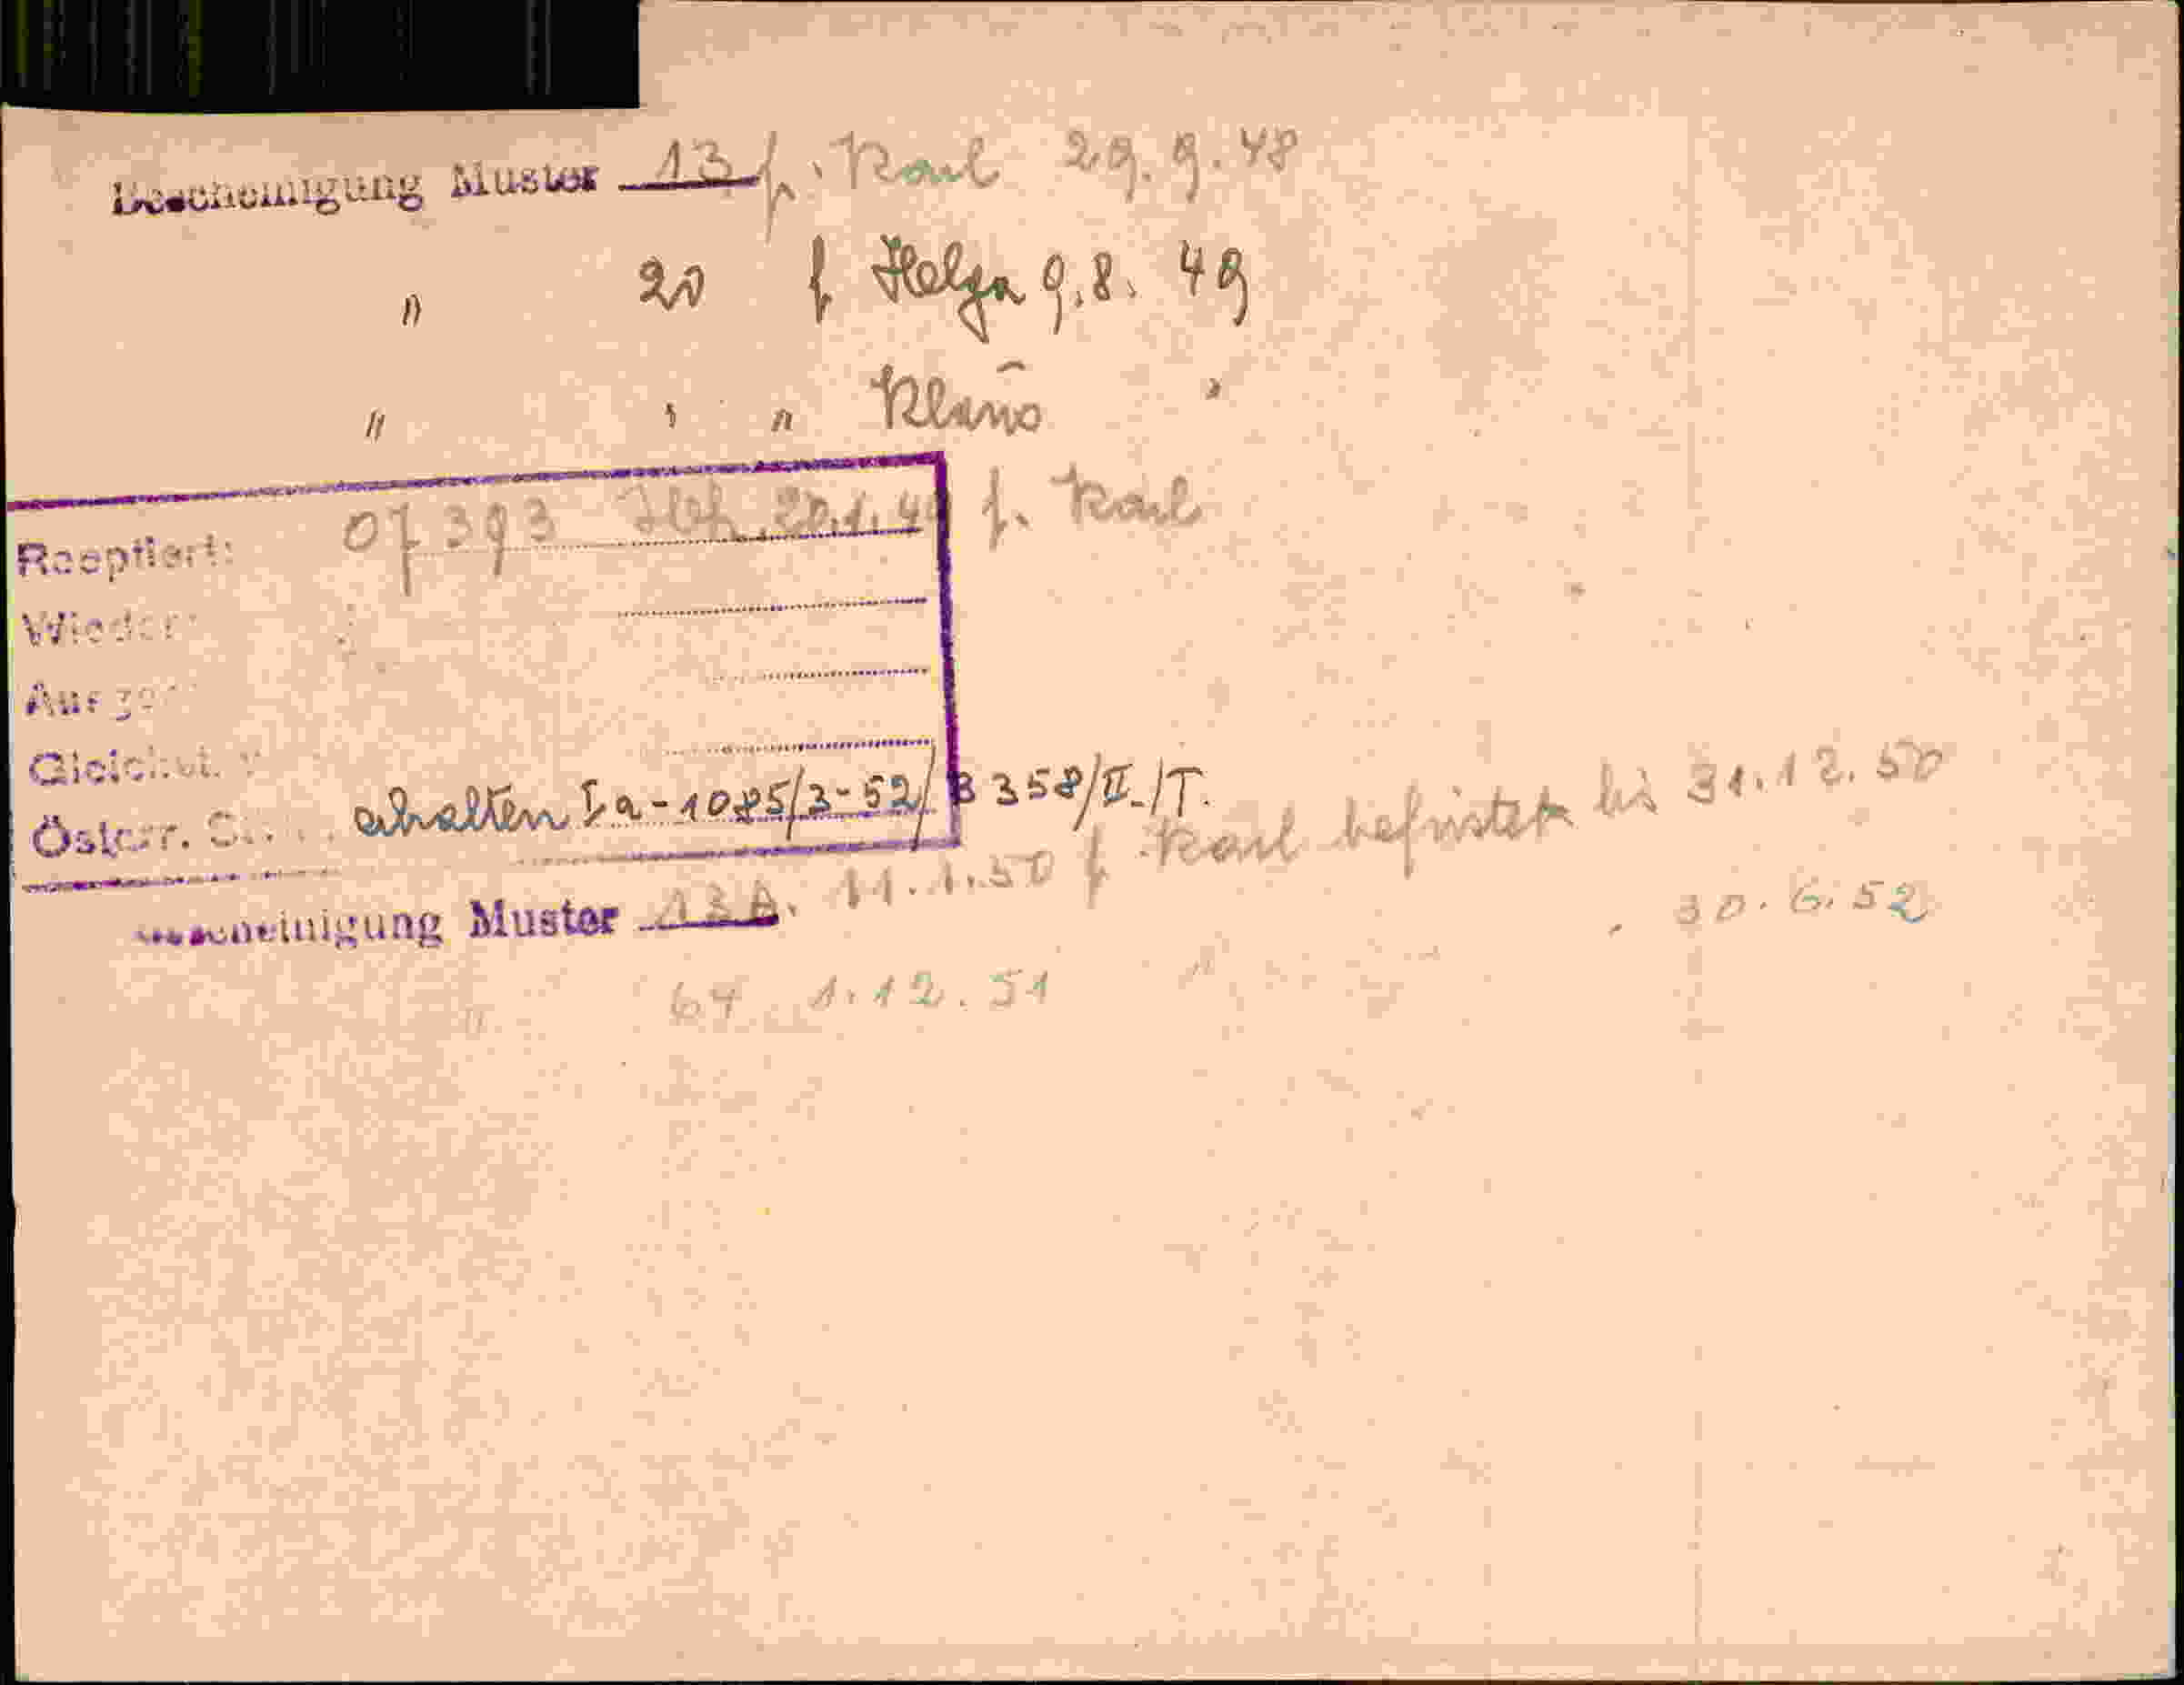 Bescheinigung Muster 13 f. Karl 29.9.48
" 20 f Helga 9.8.49
" " " Klaus "
Reoptiert: 07393 20.1.49 f. Karl
Wieder
Ausger
Gleichst.
Österr. erhalten Ia-1085/3-52/B 358/II-/T.
Bescheinigung Muster 13A. 11.1.50 f. Karl befristet bis 31.12.50
" 64 1.12.51 " " 30.6.52